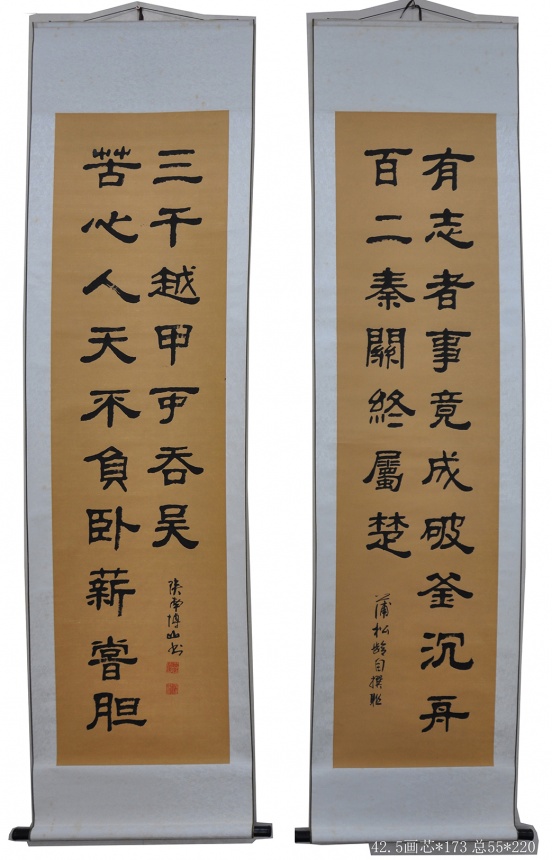 有志者事竟成破釜沉舟
百二秦關終屬楚
蒲松齡自撰聯
苦心人天不負卧薪嘗胆
三千越甲可吞吴
博山书
42.5画芯*173 总55*220